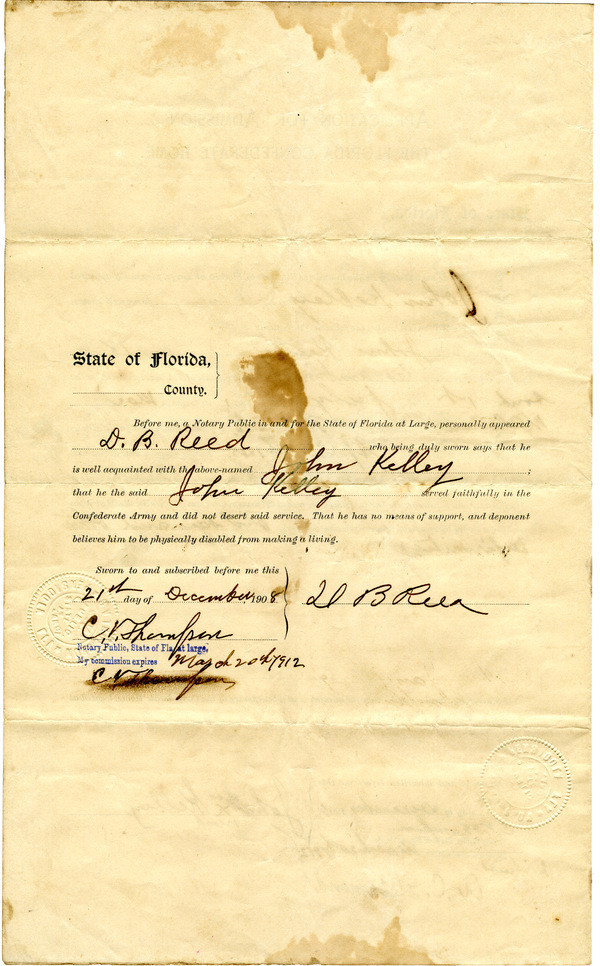 State of Florida,
County.
Before me, a Notary Public in and for the State of Florida at Large, personally appeared
D. B. Reed who being duly sworn says that he
is well acquainted with the above-named John Kelley ;
that he the said John Kelley served faithfully in the
Confederate Army and did not desert said service. That he has no means of support, and deponent
believes him to be physically disabled from making a living.
Sworn to and subscribed before me this
21st day of December, 1908
D B Reed
C. V. Thompson
Notary Public, State of Fla. at large,
My commission expires March 20th 1912
C V Thompson